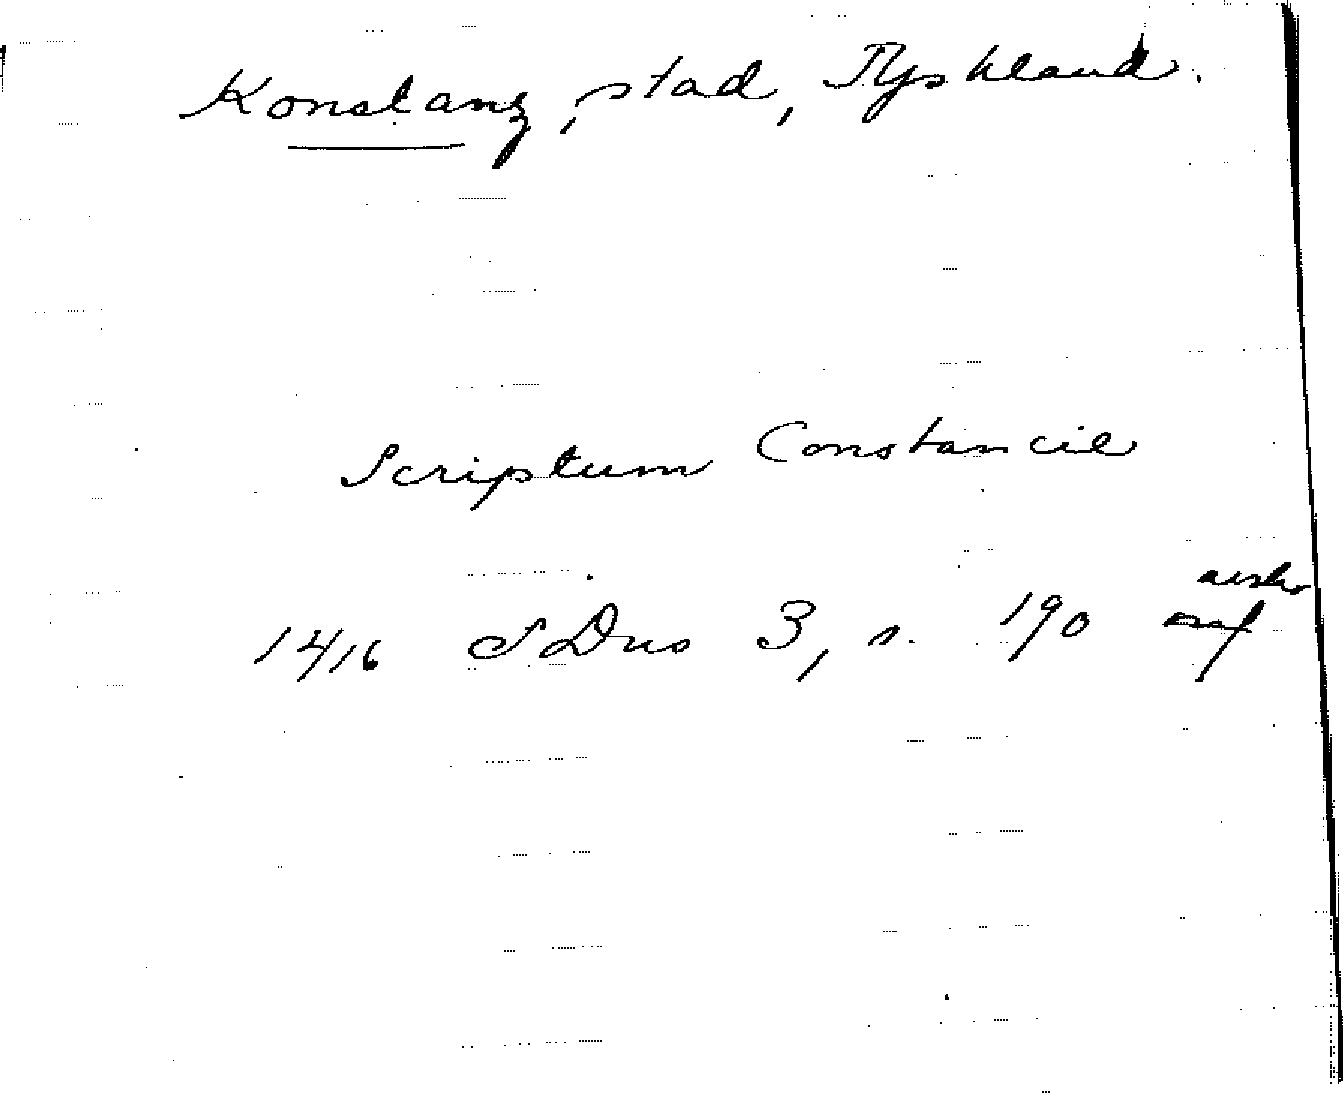 Konstanz, stad, Tyskland.
Scriptum Constancie
avskr
1416 SDns 3, s. 190 oraf